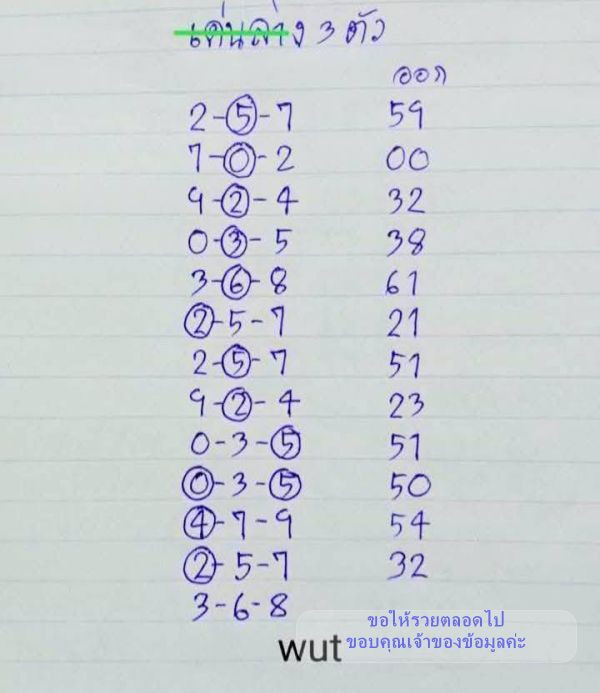 เด่นล่าง 3 ตัว
ออก
2-5-7 59
7-0-2 00
9-2-4 32
0-3-5 38
3-6-8 61
2-5-7 21
2-5-7 51
9-2-4 23
0-3-5 51
0-3-5 50
4-7-9 54
2-5-7 32
3-6-8
ขอให้รวยตลอดไป
ขอบคุณเจ้าของข้อมูลค่ะ
wut